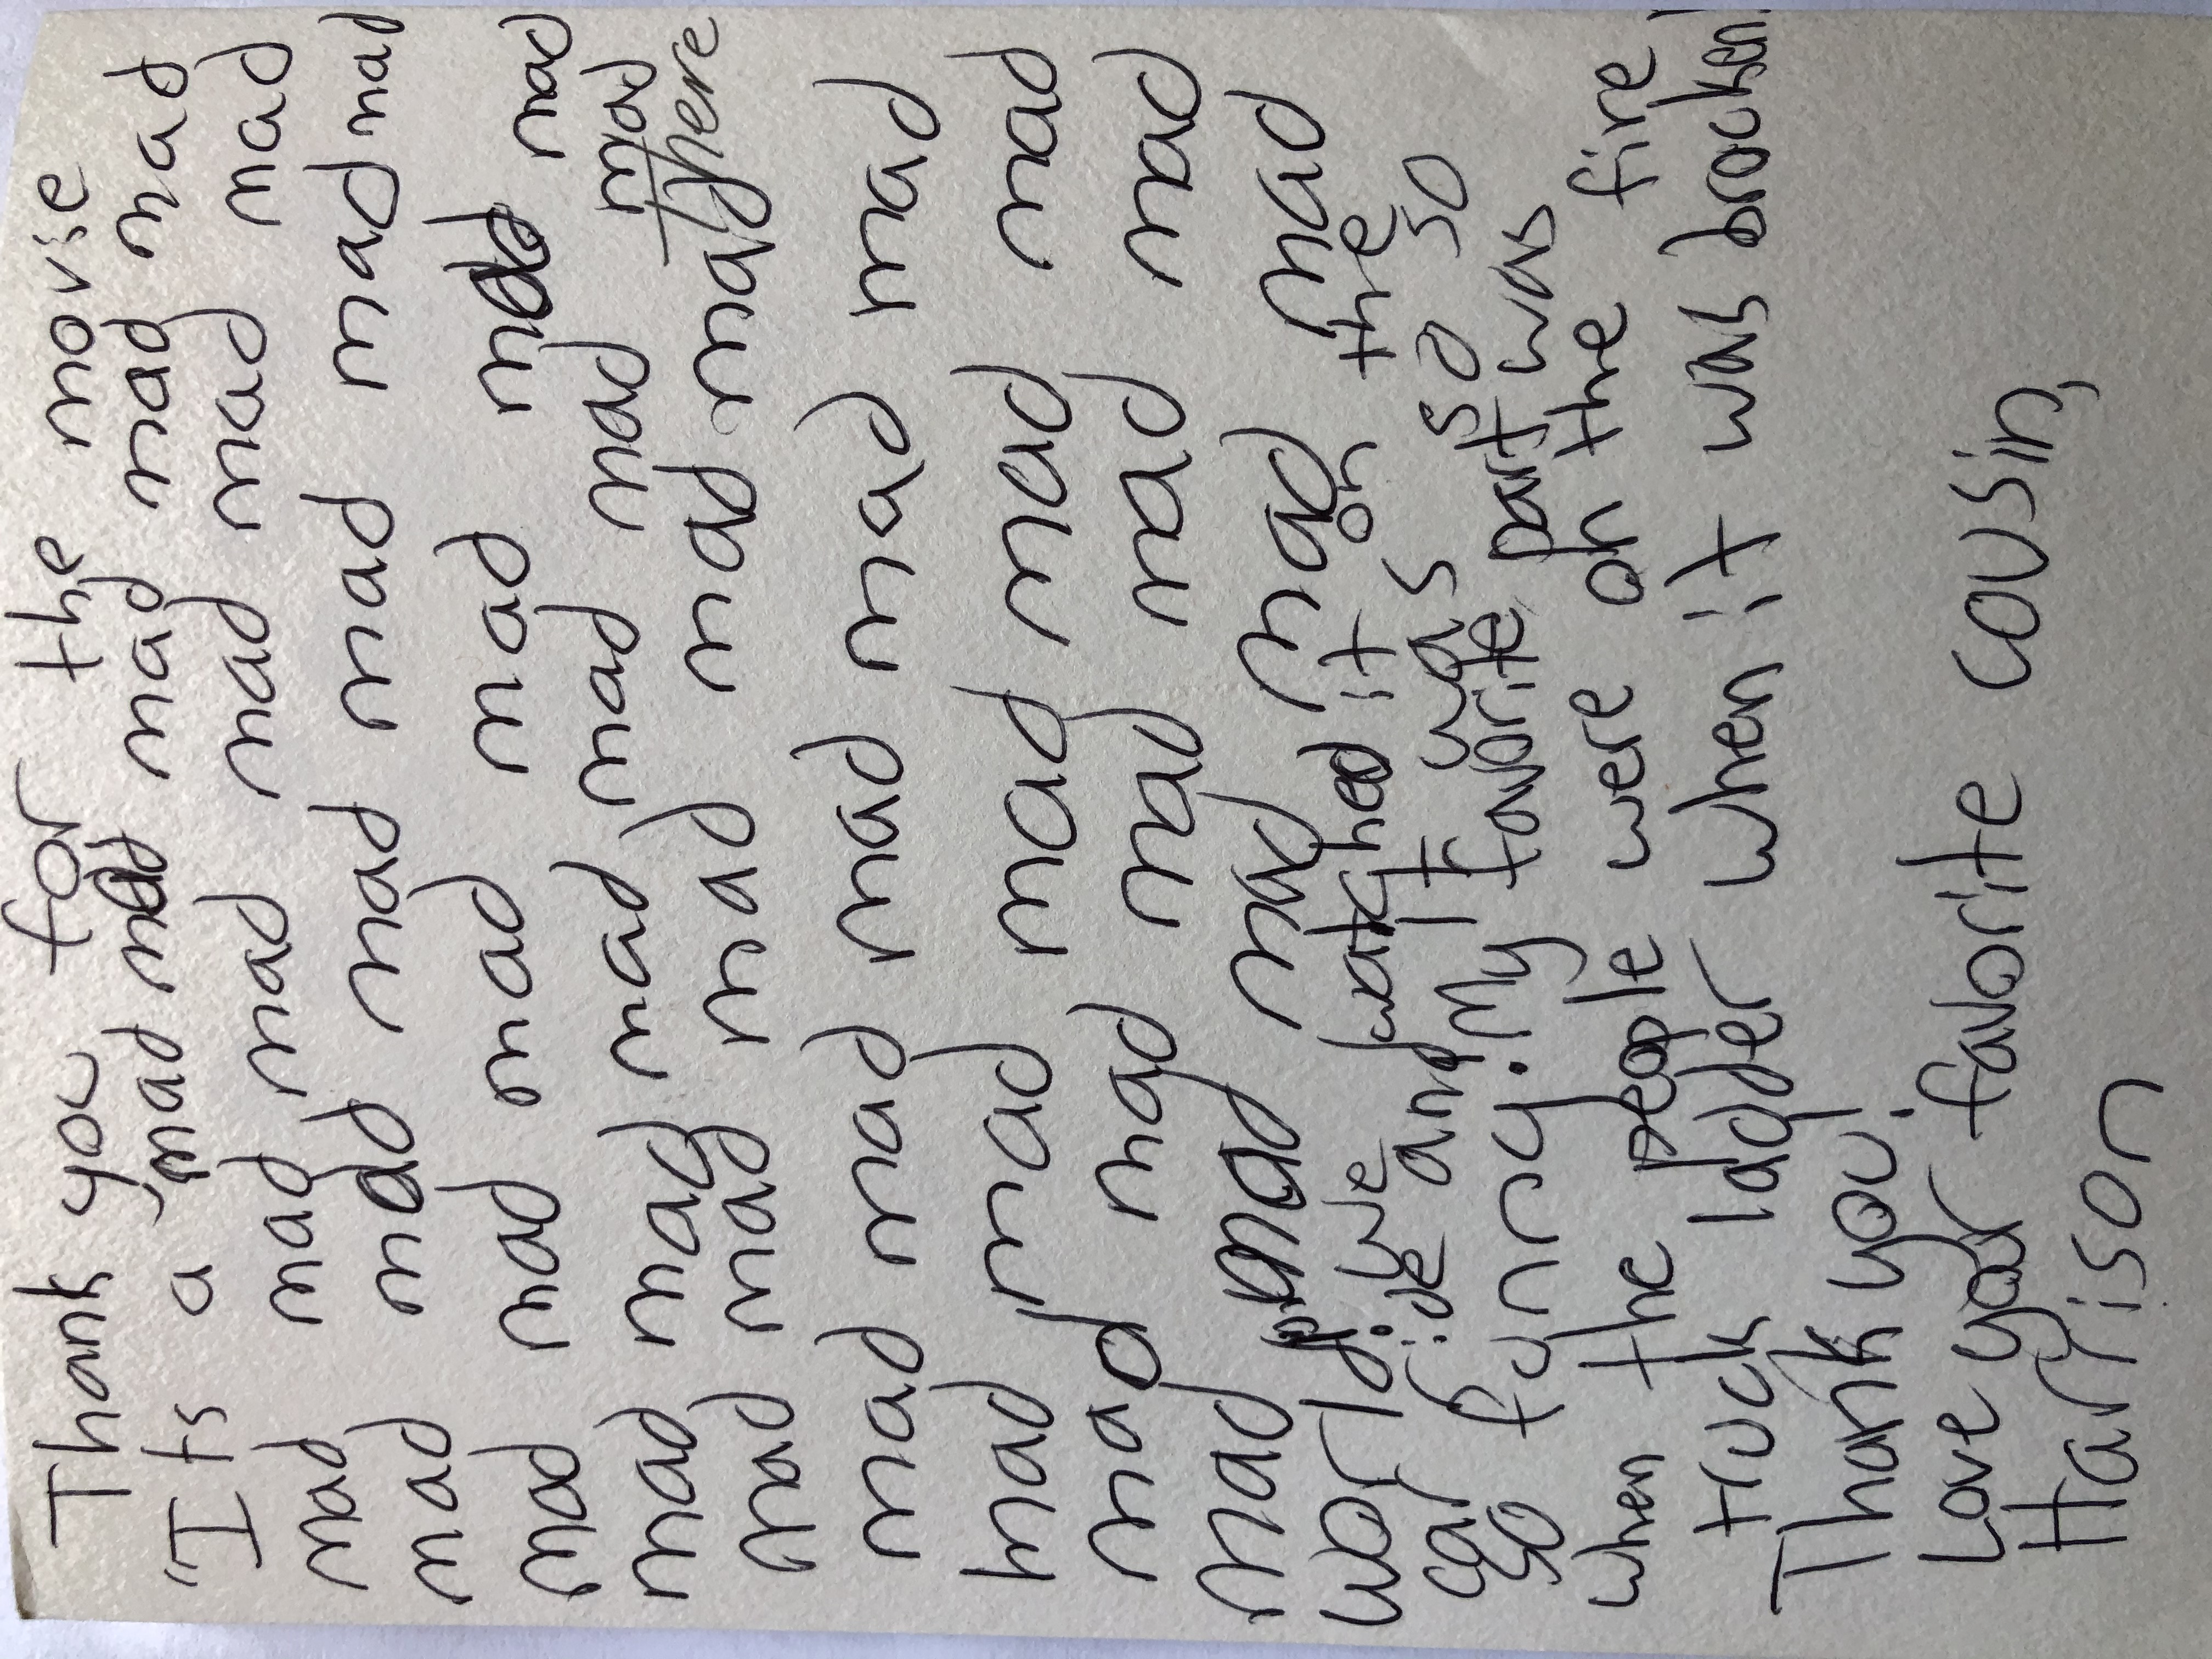 Thank you for the movie
"Its a mad mad mad mad mad
mad mad mad mad mad mad
mad mad mad mad mad mad
mad mad mad mad mad mad
mad mad mad mad mad mad
There
mad mad mad mad mad
mad mad mad mad mad
mad mad mad mad mad
mad mad mad mad mad
mad mad mad mad mad
world! We watched it on the
car ride and it was so so
so funny! My favorite part was
when the people were on the fire
truck ladder when it was brocken!
Thank you!
Love your favorite cousin,
Harrison